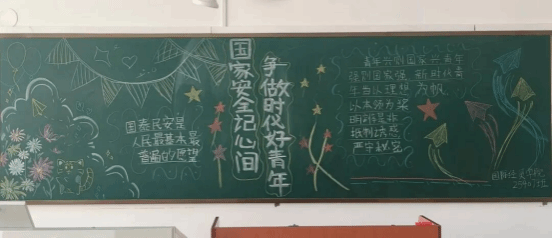 国家安全记心间
争做时代好青年
国泰民安是
人民最基本最
普遍的愿望
青年兴则国家兴 青年
强则国家强 新时代青
年当以理想为帆
以本领为桨
明辨是非
抵制诱惑
严守秘密